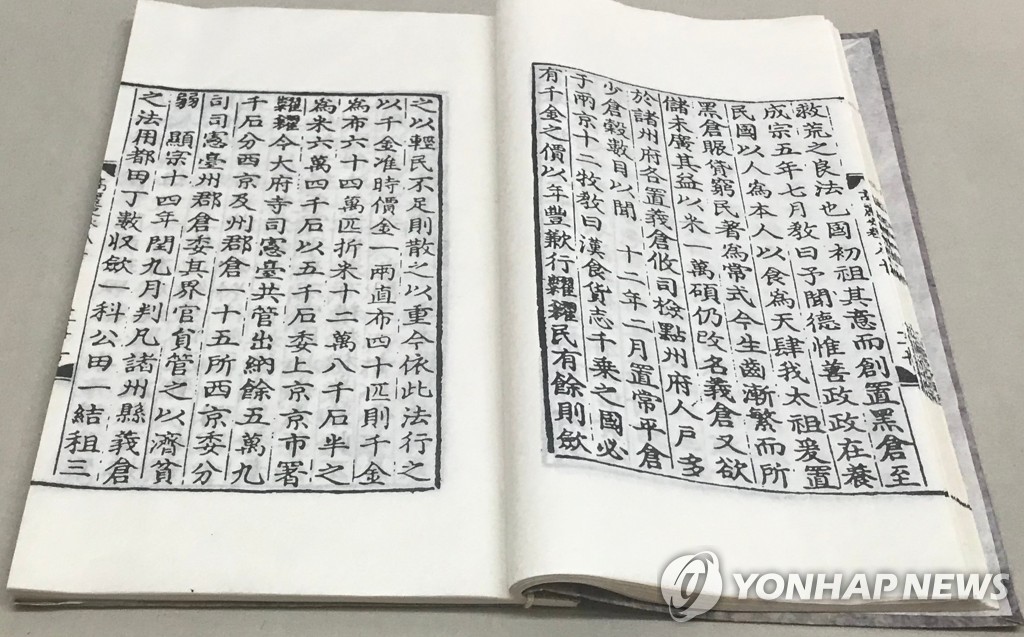 救荒之良法也國初祖其意而創置黑倉至
成宗五年七月敎曰予聞德惟善政政在養
民國以人為本人以食為天肆我太祖爰置
黑倉賑貸窮民著為常式今生齒漸繁而所
儲未廣其益以米一萬碩仍改名義倉又欲
於諸州府各置義倉攸司檢點州府人戶多
少倉穀數目以聞 十二年二月置常平倉
于兩京十二牧敎曰漢食貨志千乘之國必
有千金之價以年豊歉行糶糴民有餘則歛
之以輕民不足則散之以重今依此法行之
以千金准時價金一兩直布四十匹則千金
為布六十四萬匹折米十二萬八千石半之
為米六萬四千石以五千石委上京京市署
糶糴令大府寺司憲臺共管出納餘五萬九
千石分西京及州郡倉一十五所西京委分
司司憲臺州郡倉委其界官員管之以濟貧
弱 顯宗十四年閏九月判凡諸州縣義倉
之法用都田丁數収歛一科公田一結租三
YONHAP NEWS